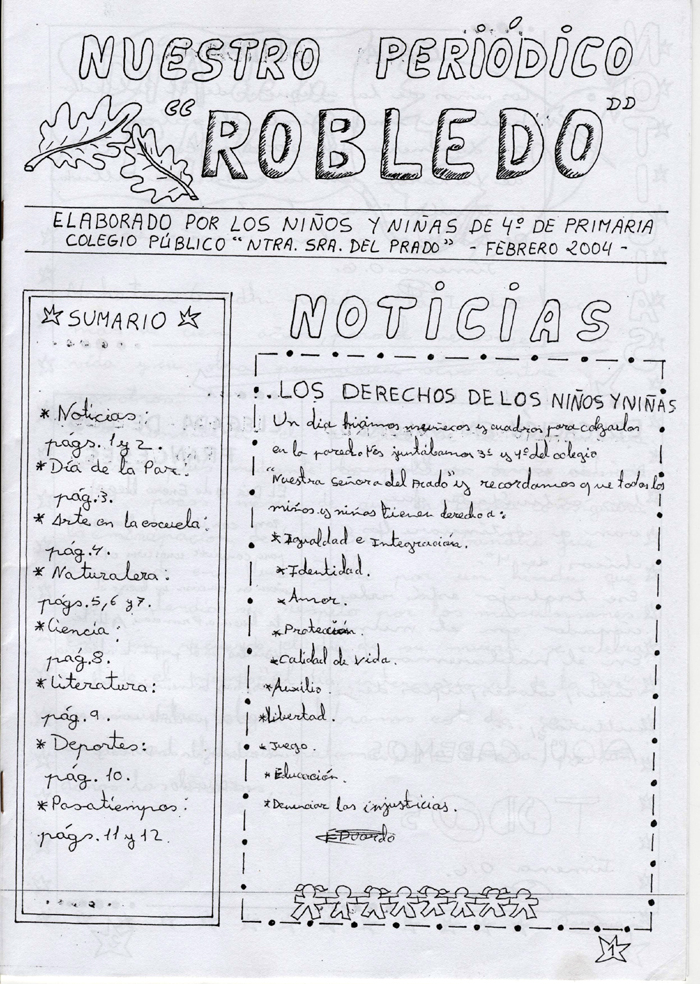 NUESTRO PERIÓDICO
"ROBLEDO"
ELABORADO POR LOS NIÑOS Y NIÑAS DE 4º DE PRIMARIA
COLEGIO PÚBLICO "NTRA. SRA. DEL PRADO" - FEBRERO 2004 -
SUMARIO
* Noticias
pags. 1 y 2
* Día de la Paz:
pág. 3.
* Arte en la escuela:
pag. 4.
* Naturaleza:
págs. 5, 6 y 7.
* Ciencia:
pág. 8.
* Literatura:
pág. 9.
* Deportes:
pág. 10.
* Pasatiempos:
págs. 11 y 12.
NOTICIAS
LOS DERECHOS DE LOS NIÑOS Y NIÑAS
Un día hicimos muñecos y cuadros para colgarlos
en la pared. Nos juntábamos 3º y 4º del colegio
"Nuestra Señora del Prado" y recordamos que todos los
niños y niñas tienen derecho a:
* Igualdad e Integración.
* Identidad.
* Amor.
* Protección.
* Calidad de Vida.
* Auxilio.
* libertad.
* Juego.
* Educación.
* Denunciar las injusticias.
Eduardo
1